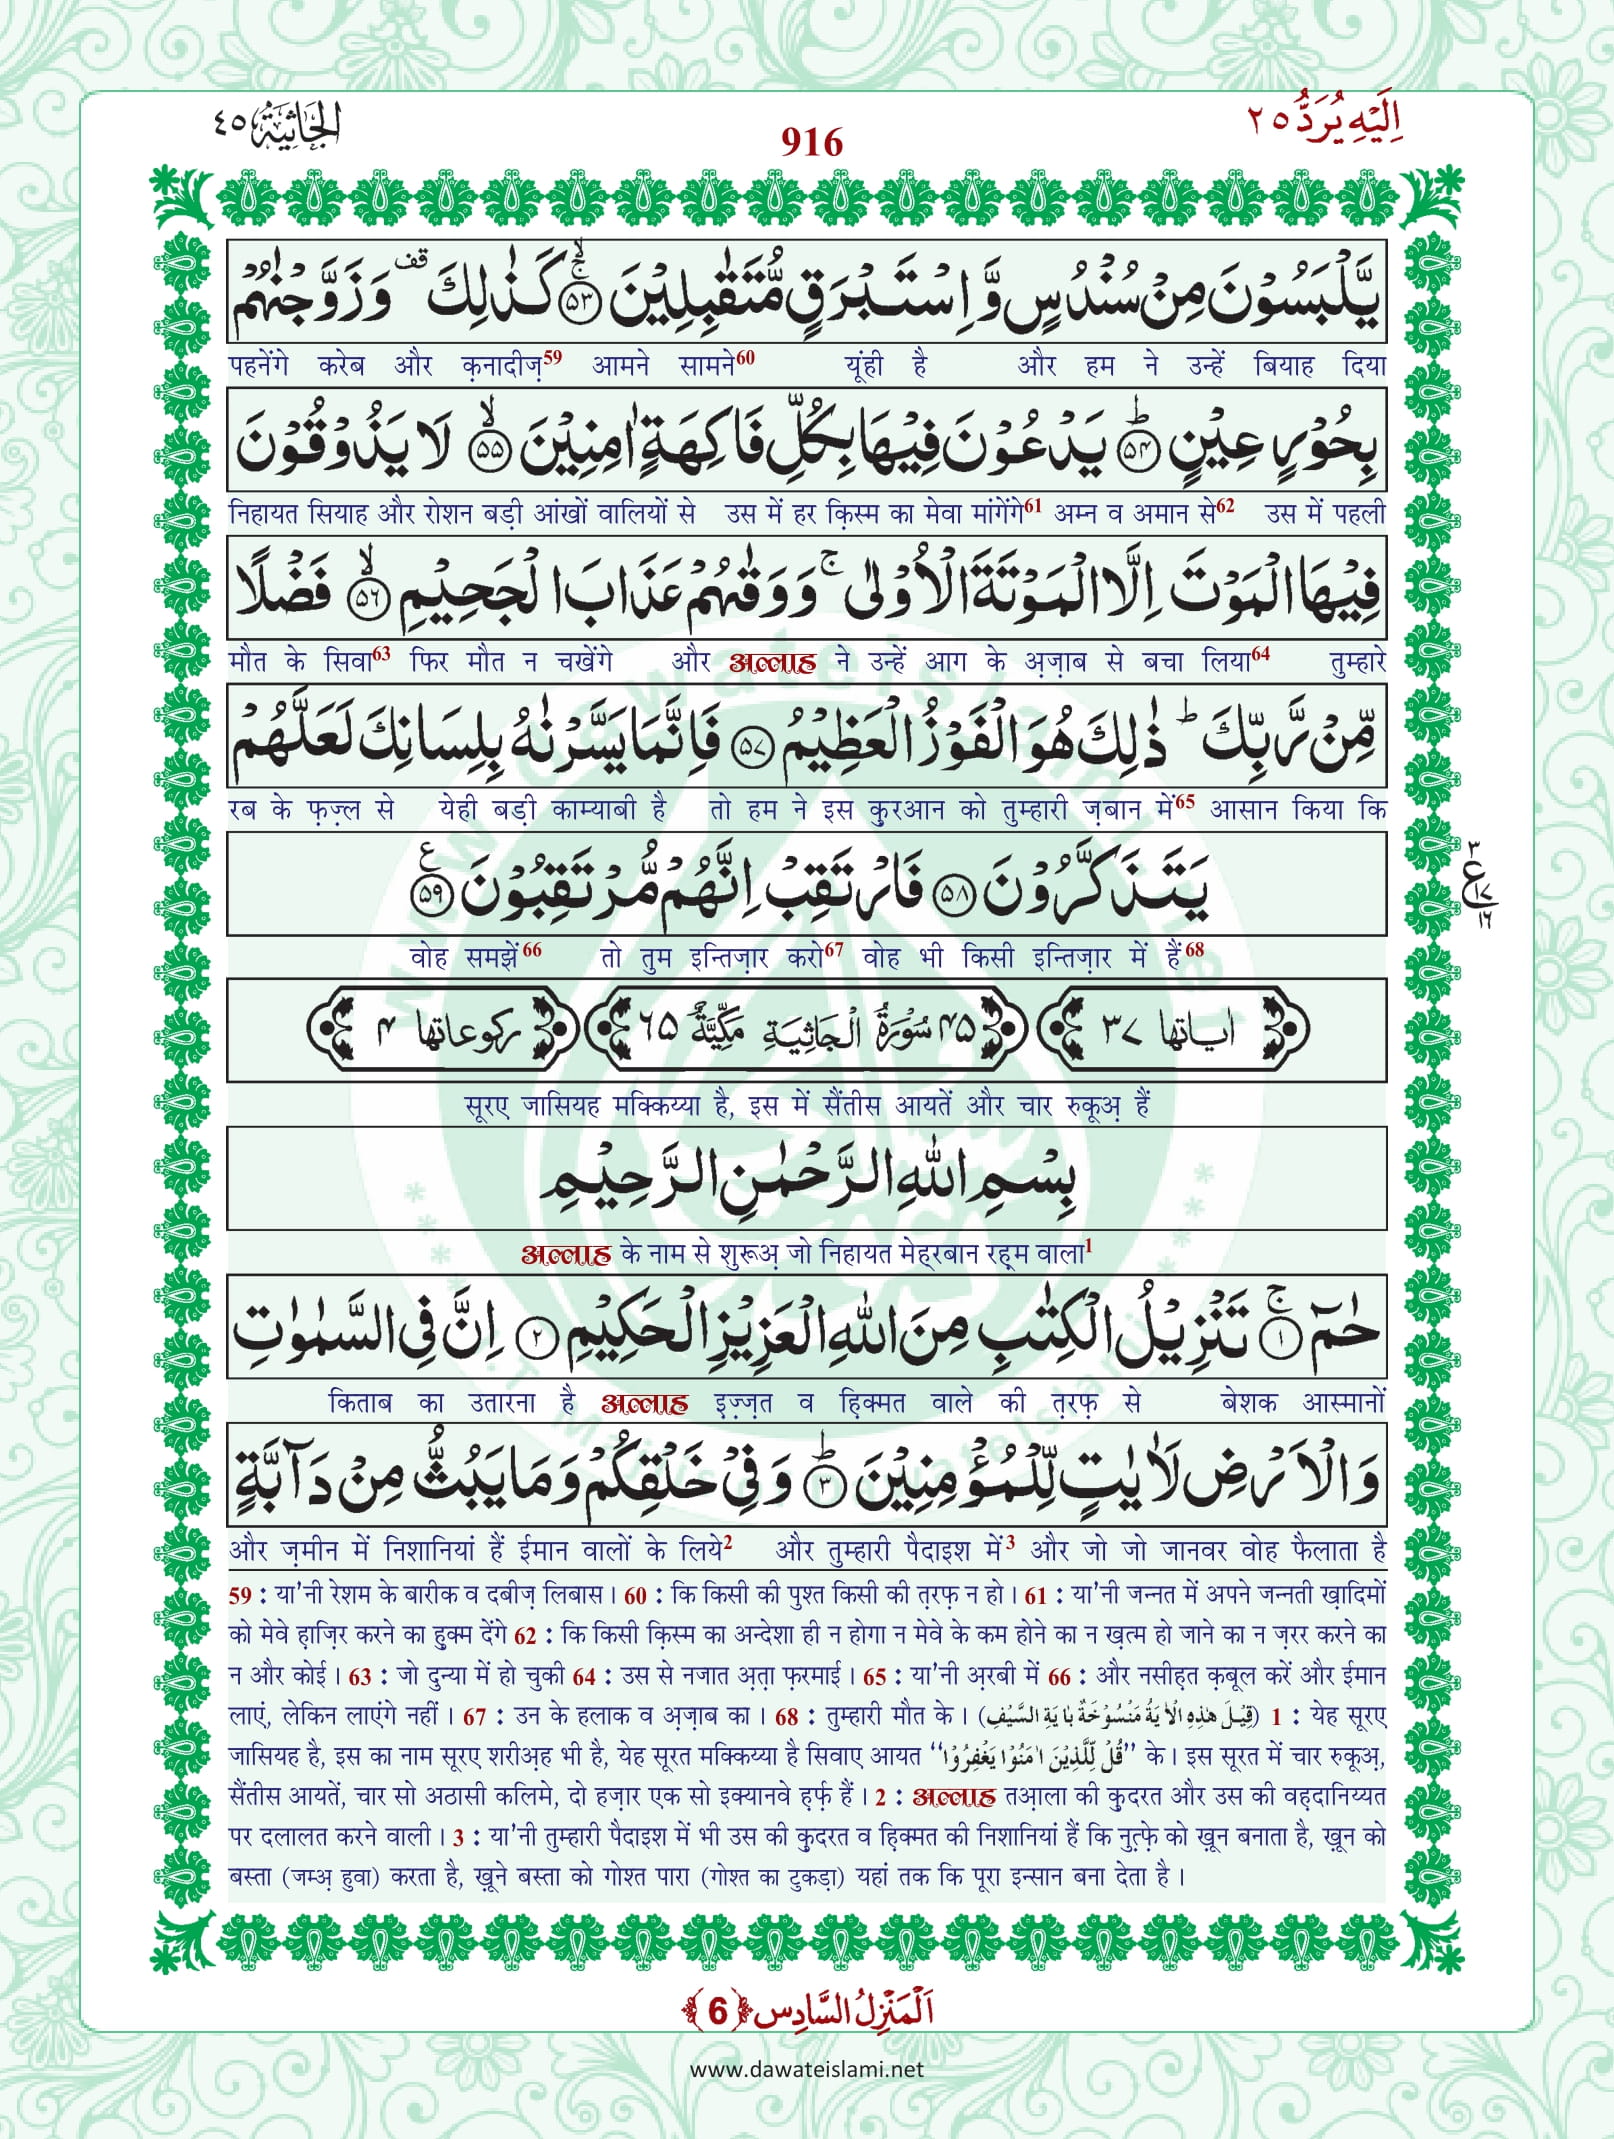 اِلَیْهِ یُرَدُّ ٢٥
916
الجَاثِیَة ٤٥
یَّلْبَسُوْنَ مِنْ سُنْدُسٍ وَّ اِسْتَبْرَقٍ مُّتَقٰبِلِیْنَ ﴿۵۳﴾ۚۙ كَذٰلِكَ ۫ وَ زَوَّجْنٰهُمْ
पहनेंगे करेब और क़नादीज़59 आमने सामने60 यूंही है और हम ने उन्हें बियाह दिया
بِحُوْرٍ عِیْنٍ ﴿۵۴﴾ؕ یَدْعُوْنَ فِیْهَا بِكُلِّ فَاكِهَةٍ اٰمِنِیْنَ ﴿۵۵﴾ۙ لَا یَذُوْقُوْنَ
निहायत सियाह और रोशन बड़ी आंखों वालियों से उस में हर क़िस्म का मेवा मांगेंगे61 अम्न व अमान से62 उस में पहली
فِیْهَا الْمَوْتَ اِلَّا الْمَوْتَةَ الْاُوْلٰى ۚ وَ وَقٰىهُمْ عَذَابَ الْجَحِیْمِ ﴿۵۶﴾ۙ فَضْلًا
मौत के सिवा63 फिर मौत न चखेंगे और अल्लाह ने उन्हें आग के अ़ज़ाब से बचा लिया64 तुम्हारे
مِّنْ رَّبِّكَ ؕ ذٰلِكَ هُوَ الْفَوْزُ الْعَظِیْمُ ﴿۵۷﴾ فَاِنَّمَا یَسَّرْنٰهُ بِلِسَانِكَ لَعَلَّهُمْ
रब के फ़ज़्ल से येही बड़ी काम्याबी है तो हम ने इस कुरआन को तुम्हारी ज़बान में65 आसान किया कि
یَتَذَكَّرُوْنَ ﴿۵۸﴾ فَارْتَقِبْ اِنَّهُمْ مُّرْتَقِبُوْنَ ﴿۵۹﴾۠
٣ ع ١٧ ١٦
वोह समझें66 तो तुम इन्तिज़ार करो67 वोह भी किसी इन्तिज़ार में हैं68
اٰیاتها ۳۷ ۴۵ سُوْرَةُ الْجَاثِیَةِ مَكِّیَّةٌ ۶۵ رکوعاتها ۴
सूरए जासियह मक्किय्या है, इस में सैंतीस आयतें और चार रुकूअ़ हैं
بِسْمِ اللّٰهِ الرَّحْمٰنِ الرَّحِیْمِ
अल्लाह के नाम से शुरूअ़ जो निहायत मेह्रबान रह़्म वाला1
حٰمٓ ﴿۱﴾ۚ تَنْزِیْلُ الْكِتٰبِ مِنَ اللّٰهِ الْعَزِیْزِ الْحَكِیْمِ ﴿۲﴾ اِنَّ فِی السَّمٰوٰتِ
किताब का उतारना है अल्लाह इज़्ज़त व हि़क्मत वाले की त़रफ़ से बेशक आस्मानों
وَ الْاَرْضِ لَاٰیٰتٍ لِّلْمُؤْمِنِیْنَ ﴿۳﴾ؕ وَ فِیْ خَلْقِكُمْ وَ مَا یَبُثُّ مِنْ دَآبَّةٍ
और ज़मीन में निशानियां हैं ईमान वालों के लिये2 और तुम्हारी पैदाइश में3 और जो जो जानवर वोह फैलाता है
59 : या'नी रेशम के बारीक व दबीज़ लिबास। 60 : कि किसी की पुश्त किसी की त़रफ़ न हो। 61 : या'नी जन्नत में अपने जन्नती ख़ादिमों
को मेवे ह़ाज़िर करने का हुक्म देंगे 62 : कि किसी क़िस्म का अन्देशा ही न होगा न मेवे के कम होने का न ख़त्म हो जाने का न ज़रर करने का
न और कोई। 63 : जो दुन्या में हो चुकी 64 : उस से नजात अ़त़ा फ़रमाई। 65 : या'नी अ़रबी में 66 : और नसीह़त क़बूल करें और ईमान
लाएं, लेकिन लाएंगे नहीं। 67 : उन के हलाक व अ़ज़ाब का। 68 : तुम्हारी मौत के। (قِیْلَ هٰذِهِ الْاٰیَةُ مَنْسُوْخَةٌ بِاٰیَةِ السَّیْفِ) 1 : येह सूरए
जासियह है, इस का नाम सूरए शरीअ़ह भी है, येह सूरत मक्किय्या है सिवाए आयत "قُلْ لِّلَّذِیْنَ اٰمَنُوْا یَغْفِرُوْا" के। इस सूरत में चार रुकूअ़,
सैंतीस आयतें, चार सो अठासी कलिमे, दो हज़ार एक सो इक्यानवे ह़र्फ़ हैं। 2 : अल्लाह तआ़ला की कुदरत और उस की वह़दानिय्यत
पर दलालत करने वाली। 3 : या'नी तुम्हारी पैदाइश में भी उस की कुदरत व हि़क्मत की निशानियां हैं कि नुत़्फ़े को ख़ून बनाता है, ख़ून को
बस्ता (जम्अ़ हुवा) करता है, ख़ूने बस्ता को गोश्त पारा (गोश्त का टुकड़ा) यहां तक कि पूरा इन्सान बना देता है।
اَلْمَنْزِلُ السَّادِس ﴿6﴾
www.dawateislami.net